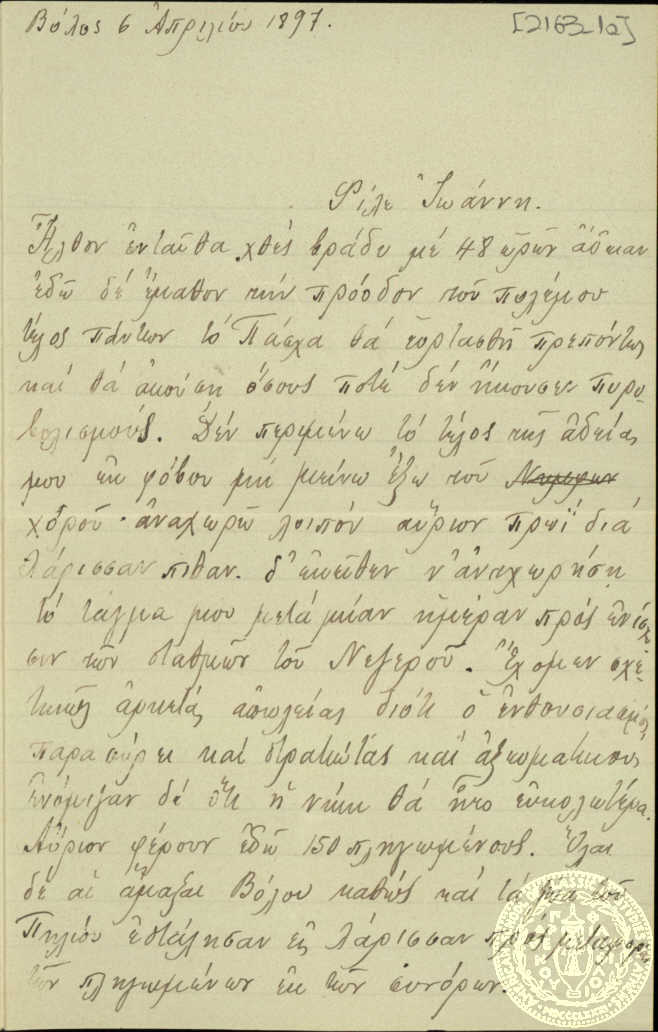 Βόλος 6 Ἀπριλίου 1897.
[2163_1a]
Φίλε Ἰωάννη.
Ἦλθον ἐνταῦθα χθὲς βράδυ μέ 48 ὡρῶν ἄδειαν
ἐδῶ δέ ἔμαθον τήν πρόοδον τοῦ πολέμου
τέλος πάντων τό Πάσχα θά ἑορτασθῇ πρεπόντως
καί θά ἀκούσῃ ὅσους ποτέ δέν ἤκουσεν πυρο-
βολισμούς. Δέν περιμένω τό τέλος τῆς ἀδείας
μου ἐκ φόβου μή μείνω ἔξω τοῦ
χοροῦ· ἀναχωρῶ λοιπόν αὔριον πρωΐ διά
Λάρισσαν πιθαν. δ' ἐκεῖθεν ν' ἀναχωρήσῃ
τό τάγμα μου μετά μίαν ἡμέραν πρός ἐνίσχυ-
σιν τῶν σταθμῶν τοῦ Νεζεροῦ. Ἔχομεν σχε-
τικῶς ἀρκετάς ἀπωλείας διότι ὁ ἐνθουσιασμός
παρασύρει καί στρατιώτας καί ἀξιωματικούς
ἐνόμιζαν δέ ὅτι ἡ νίκη θά ἦτο εὐκολωτέρα.
Αὔριον φέρουν ἐδῶ 150 πληγωμένους. Ὅλαι
δέ αἱ ἅμαξαι Βόλου καθώς καί τά τοῦ
Πηλίου ἐστάλησαν εἰς Λάρισσαν πρός μεταφοράν
τῶν πληγωμένων ἐκ τῶν συνόρων.